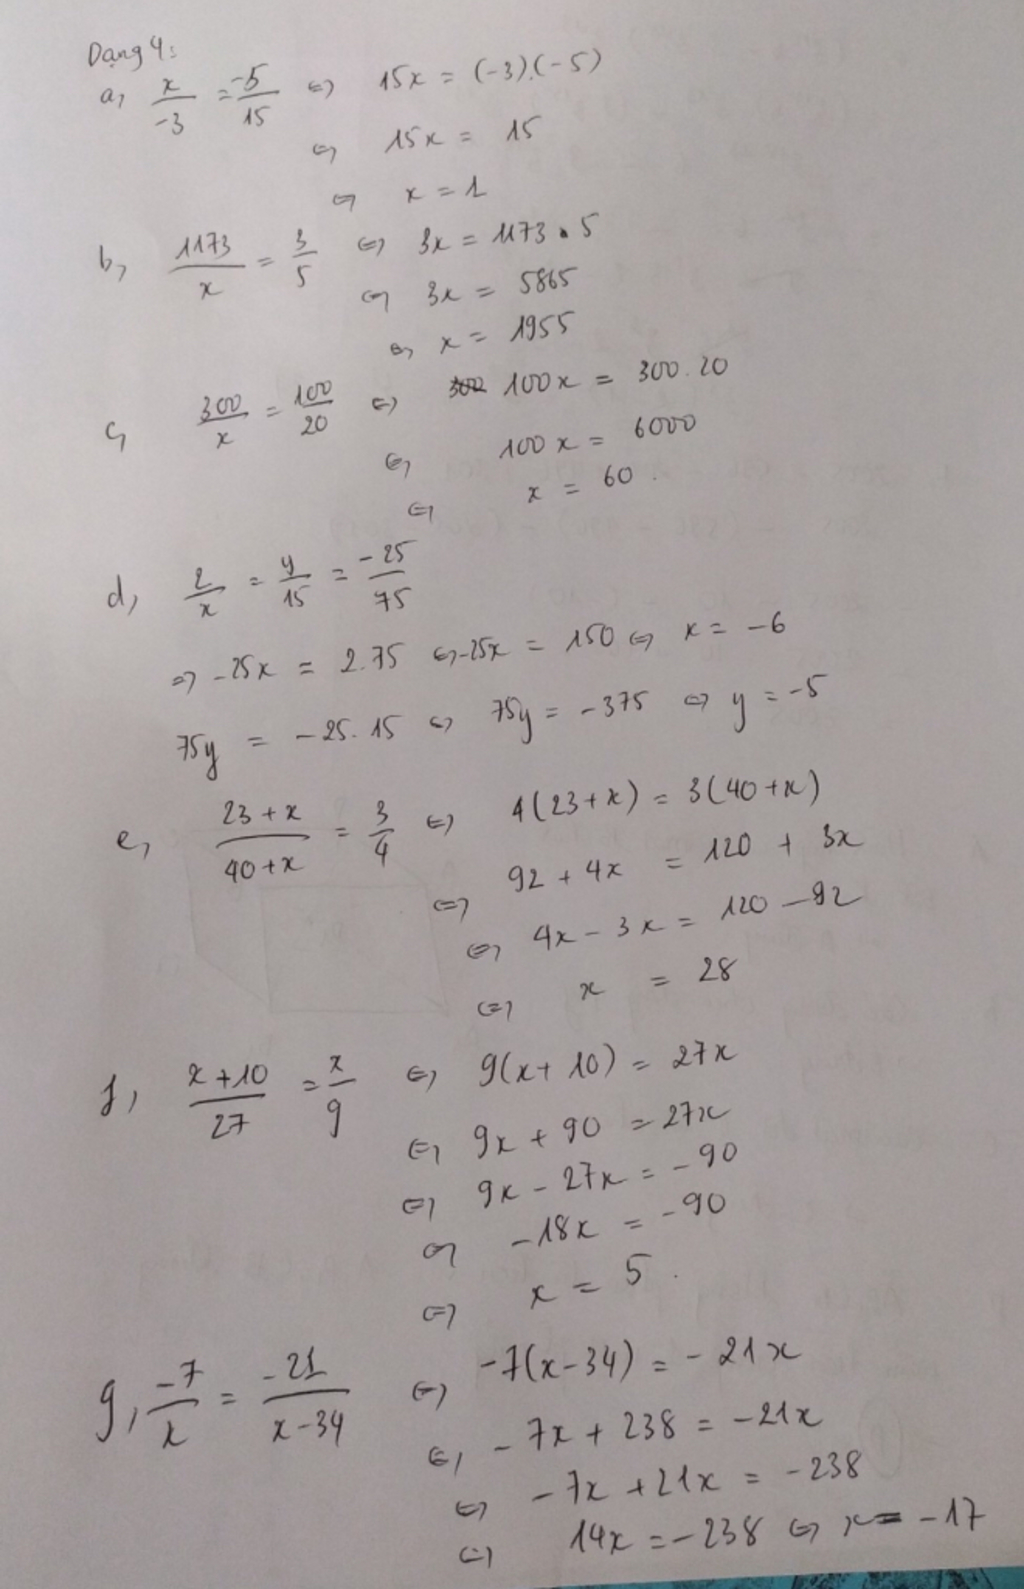 Dạng 4:
a, x/-3 = -5/15 <=> 15x = (-3).(-5)
<=> 15x = 15
<=> x = 1
b, 1173/x = 3/5 <=> 3x = 1173 . 5
<=> 3x = 5865
<=> x = 1955
c, 300/x = 100/20 <=> 100x = 300.20
<=> 100x = 6000
<=> x = 60.
d, 2/x = y/15 = -25/75
=> -25x = 2.75 <=> -25x = 150 <=> x = -6
75y = -25.15 <=> 75y = -375 <=> y = -5
e, 23+x/40+x = 3/4 <=> 4(23+x) = 3(40+x)
<=> 92 + 4x = 120 + 3x
<=> 4x - 3x = 120 - 92
<=> x = 28
f, x+10/27 = x/9 <=> 9(x+10) = 27x
<=> 9x + 90 = 27x
<=> 9x - 27x = -90
<=> -18x = -90
<=> x = 5.
g, -7/x = -21/x-34 <=> -7(x-34) = -21x
<=> -7x + 238 = -21x
<=> -7x + 21x = -238
<=> 14x = -238 <=> x = -17